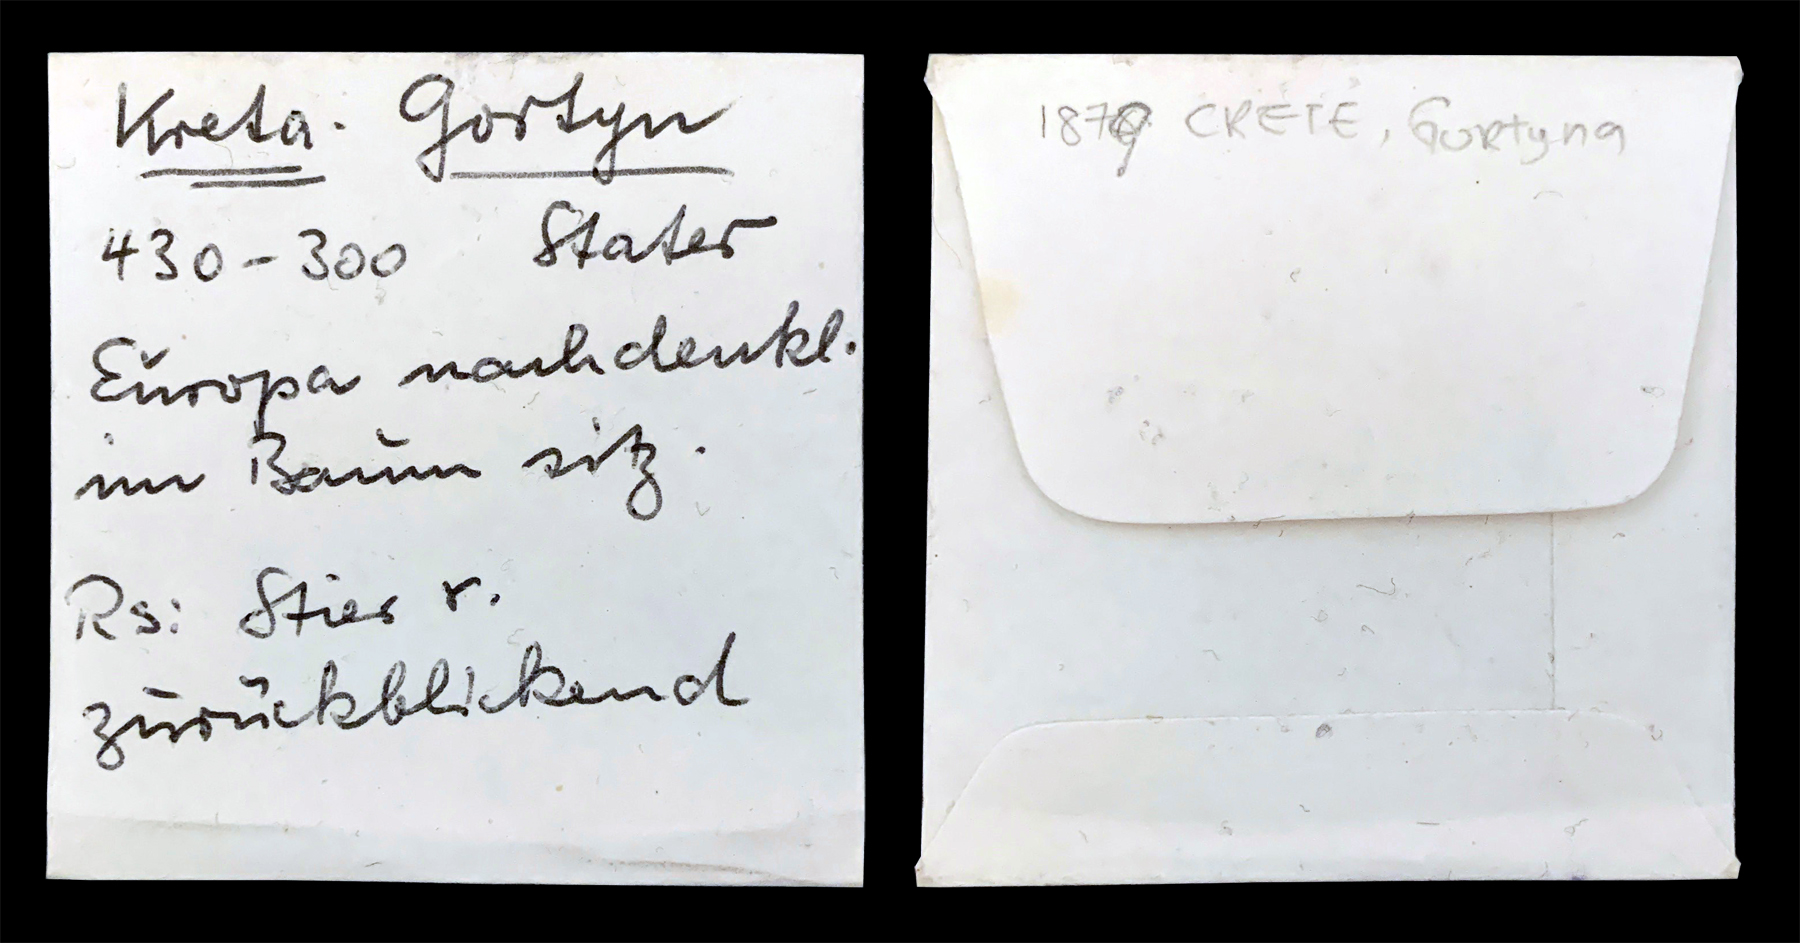 Kreta. Gortyn
430-300 Stater
Europa nachdenkl.
im Baum sitz.
Rs: Stier r.
zurückblickend
1879 CRETE, Gortyna